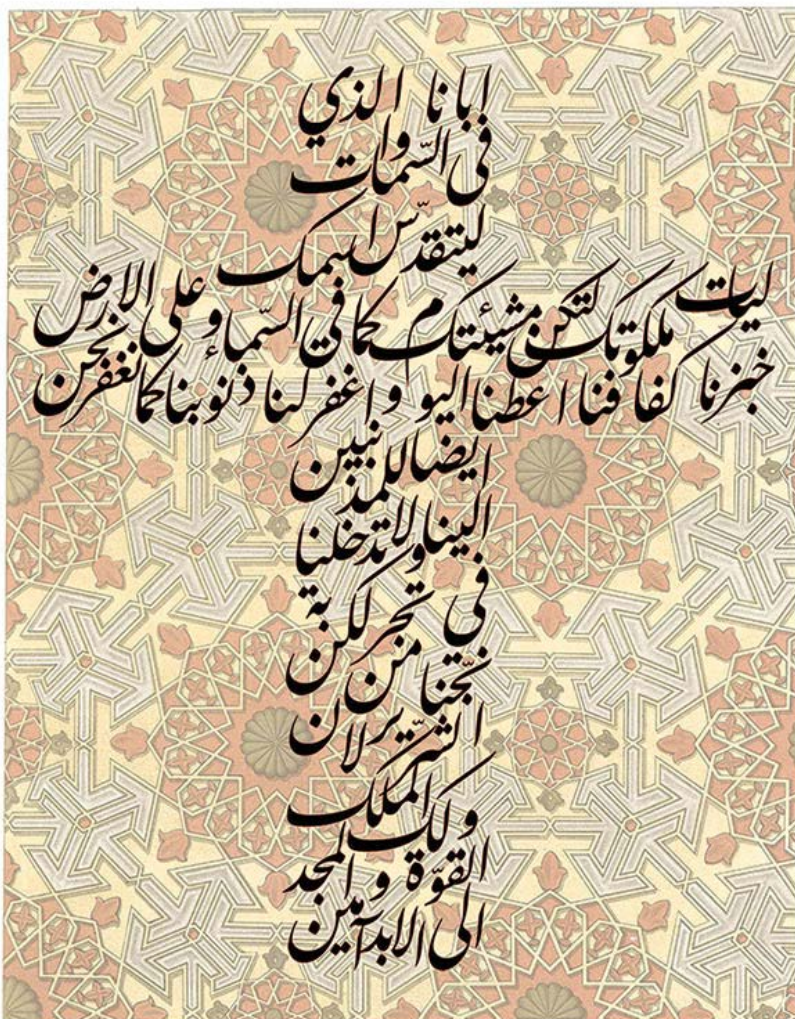 ابانا الذي
في السّموات
ليتقدّس اسمك
ليات ملكوتك لتكن مشيئتك كما في السّماء وعلى الارض
خبزنا كفافنا اعطنا اليوم واغفر لنا ذنوبنا كما نغفر نحن
ايضا للمذنبين
الينا ولا تدخلنا
في تجربة لكن
نجّنا من
الشّرير لان
لك الملك و
القوّة والمجد
الى الابد آمين